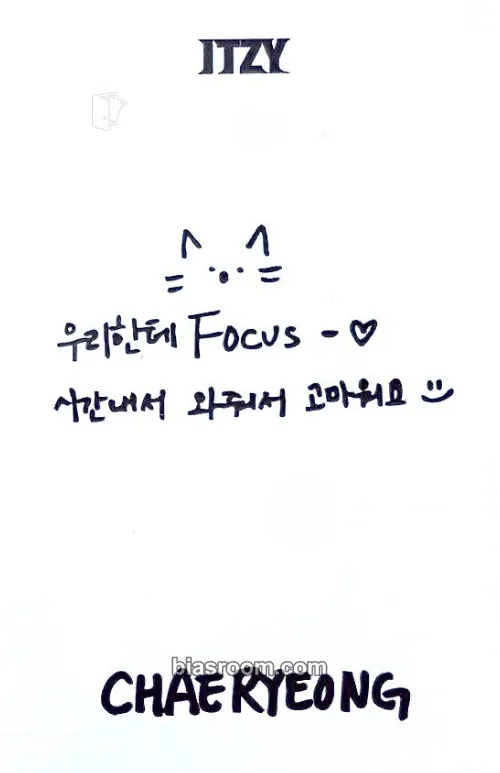 ITZY
우리한테 Focus - ♡
시간내서 와줘서 고마워요
biasroom.com
CHAERYEONG